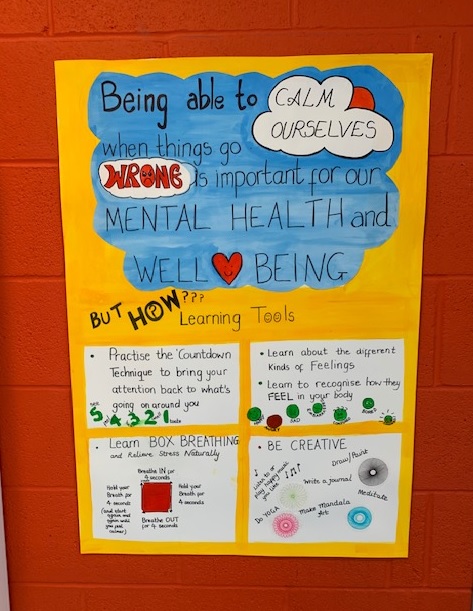 Being able to CALM
OURSELVES
when things go
WRONG is important for our
MENTAL HEALTH and
WELL BEING
BUT HOW???
Learning Tools
• Practise the 'Countdown
Technique to bring your
attention back to what's
going on around you
5 4 3 2 1
• Learn about the different
Kinds of Feelings
• Learn to recognise how they
FEEL in your body
SAD
BORED
• Learn BOX BREATHING
and Relieve Stress Naturally
Breathe IN for
4 seconds
Hold your
Breath for
4 seconds
Hold your
Breath for
4 seconds
(and start
again and
again until
you feel
calmer)
Breathe OUT
for 4 seconds
• BE CREATIVE
Draw/Paint
Listen to or
play happy music
you like
Write a journal
Meditate
Do YOGA
Make Mandala
Art